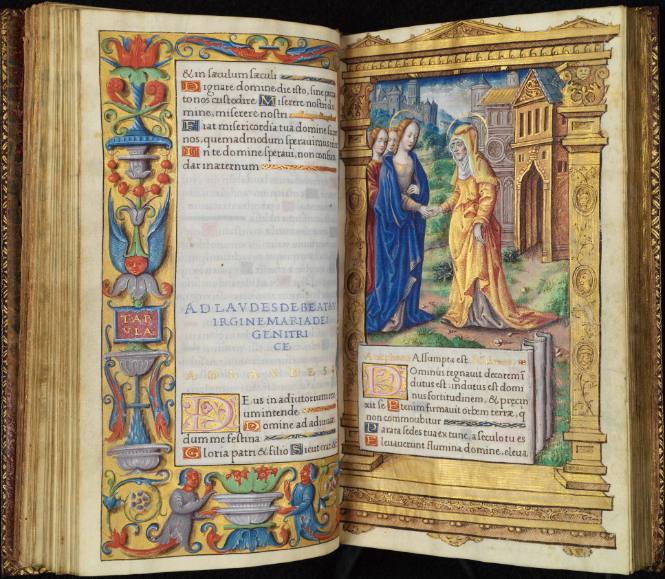 & in sæculum sæculi
Dignare domine die isto, sine pecca
to nos custodire. Miserere nostri do
mine, miserere nostri
Fiat misericordia tua domine super
nos, quemadmodum speravimus in te
In te domine speravi, non confun
dar in æternum
TAB
VLA
AD LAVDES DE BEATA V
IRGINE MARIA DEI
GENITRI
CE
Deus in adiutorium me
um intende. Domine ad adiuvan
dum me festina
Gloria patri & filio Sicut erat &
Assumpta est.
Dominus regnavit decorem ī
dutus est: indutus est domi
nus fortitudinem, & præcin
xit se Etenim firmavit orbem terræ, q
non commovebitur
Parata sedes tua ex tunc, a seculo tu es
Elevaverunt flumina domine, eleva